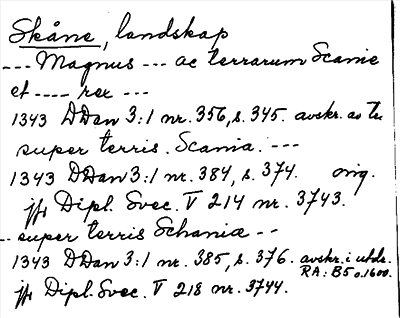 Skåne, landskap
--- Magnus --- ac terrarum Scanie
et ---- rex ---
1343 DDan 3:1 nr. 356, s. 345. avskr. ao
super terris. Scania. ---
1343 DDan 3:1 nr. 384, s. 374. orig.
jfr Dipl. Svec. V 214 nr. 3743.
-- super terris Schania --
1343 DDan 3:1 nr. 385, s. 376. avskr. i utdr.
RA: B5 o. 1600.
jfr Dipl. Svec. V 218 nr. 3744.